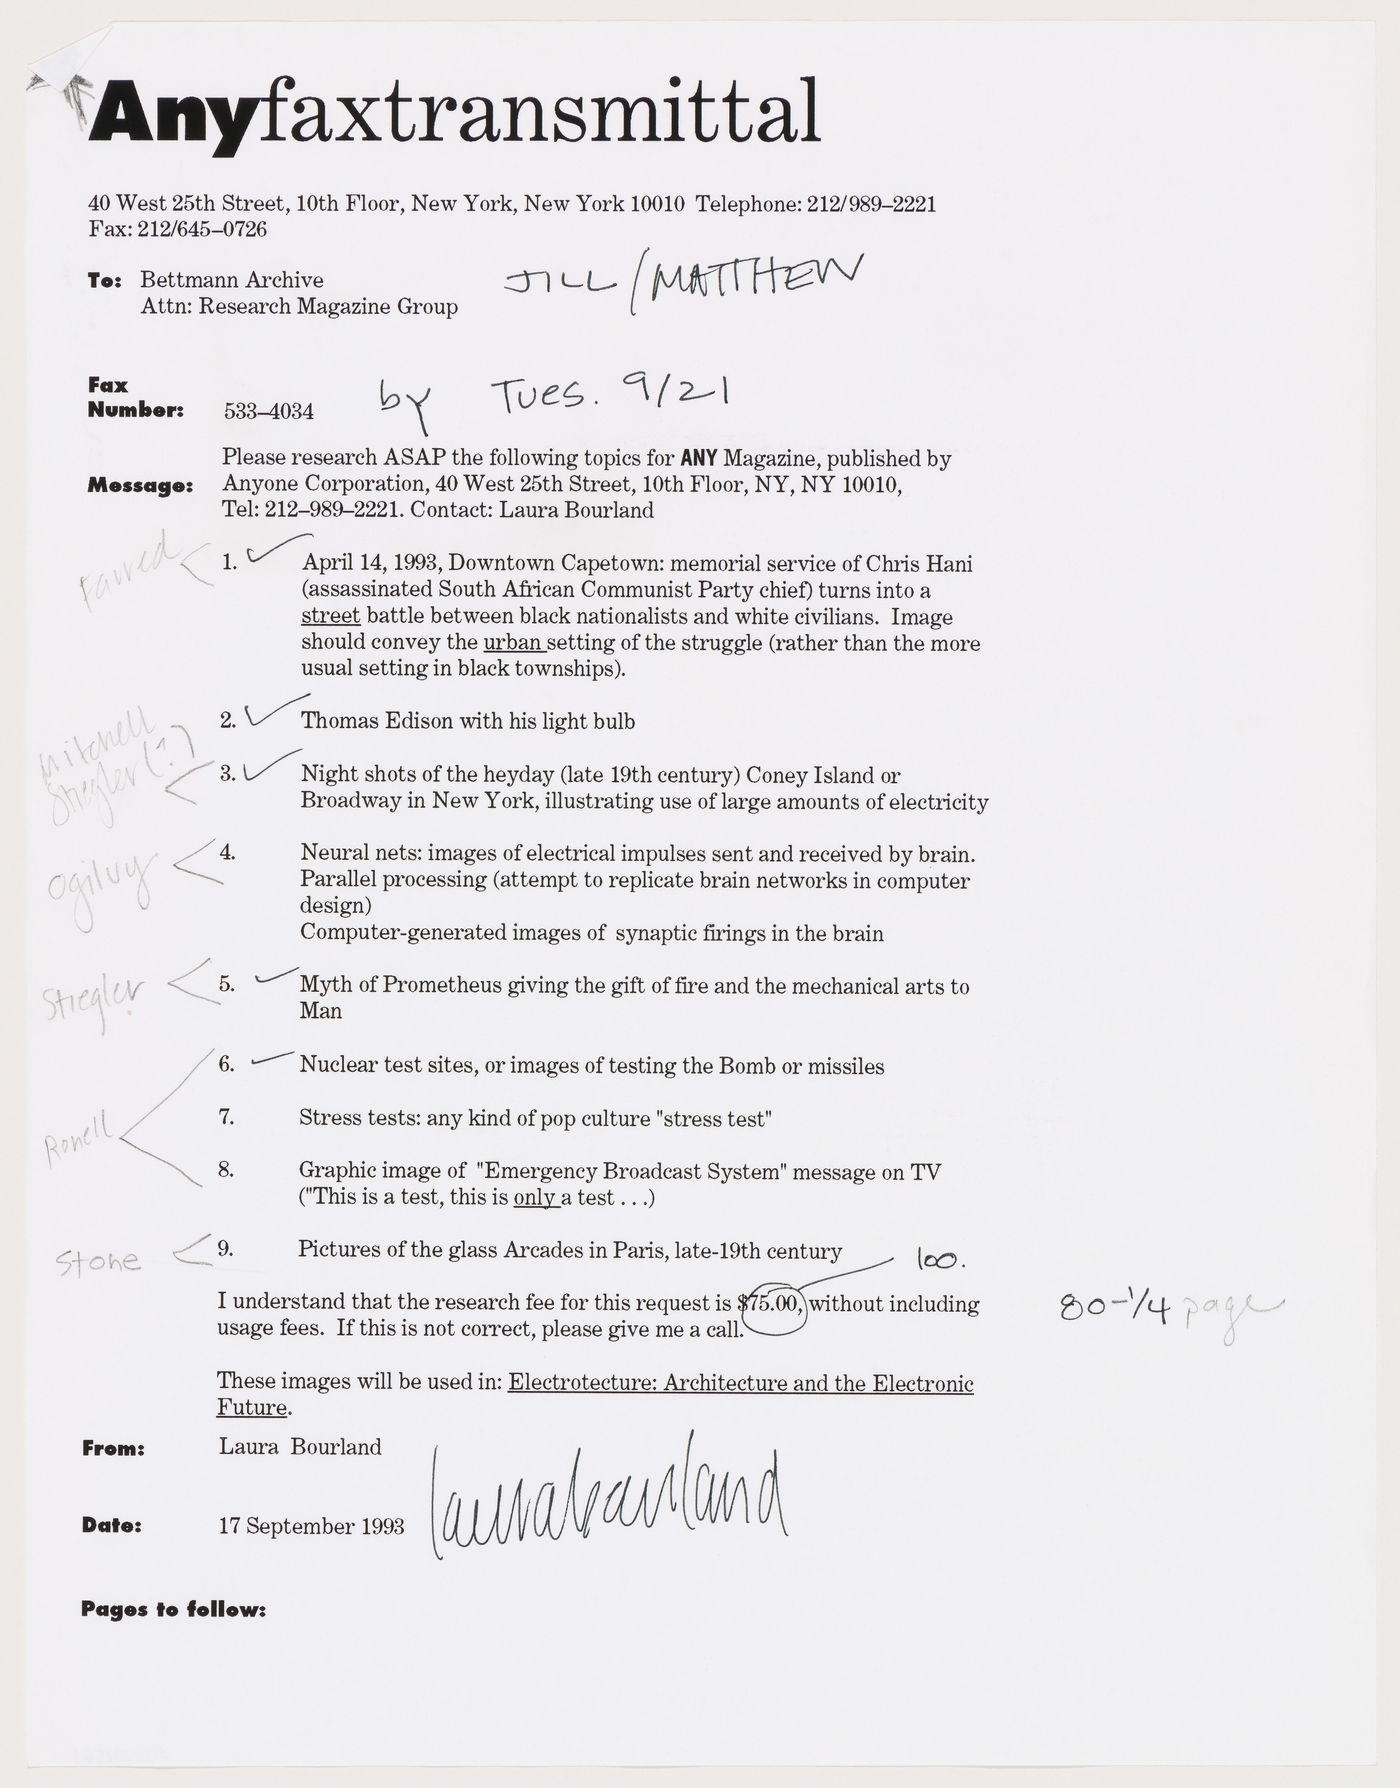 Anyfaxtransmittal
40 West 25th Street, 10th Floor, New York, New York 10010 Telephone: 212/989–2221
Fax: 212/645–0726
To: Bettmann Archive JILL/MATTHEW
Attn: Research Magazine Group
Fax
Number: 533–4034 by Tues. 9/21
Please research ASAP the following topics for ANY Magazine, published by
Message: Anyone Corporation, 40 West 25th Street, 10th Floor, NY, NY 10010,
Tel: 212–989–2221. Contact: Laura Bourland
Farred < 1. ✓ April 14, 1993, Downtown Capetown: memorial service of Chris Hani
(assassinated South African Communist Party chief) turns into a
street battle between black nationalists and white civilians. Image
should convey the urban setting of the struggle (rather than the more
usual setting in black townships).
2. ✓ Thomas Edison with his light bulb
Mitchell
Stiegler (?) < 3. ✓ Night shots of the heyday (late 19th century) Coney Island or
Broadway in New York, illustrating use of large amounts of electricity
Ogilvy < 4. Neural nets: images of electrical impulses sent and received by brain.
Parallel processing (attempt to replicate brain networks in computer
design)
Computer-generated images of synaptic firings in the brain
Stiegler < 5. ✓ Myth of Prometheus giving the gift of fire and the mechanical arts to
Man
6. ✓ Nuclear test sites, or images of testing the Bomb or missiles
Ronell < 7. Stress tests: any kind of pop culture "stress test"
8. Graphic image of "Emergency Broadcast System" message on TV
("This is a test, this is only a test . . .)
Stone < 9. Pictures of the glass Arcades in Paris, late-19th century 100.
I understand that the research fee for this request is $75.00, without including 80-1/4 page
usage fees. If this is not correct, please give me a call.
These images will be used in: Electrotecture: Architecture and the Electronic
Future.
From: Laura Bourland
laurabourland
Date: 17 September 1993
Pages to follow: